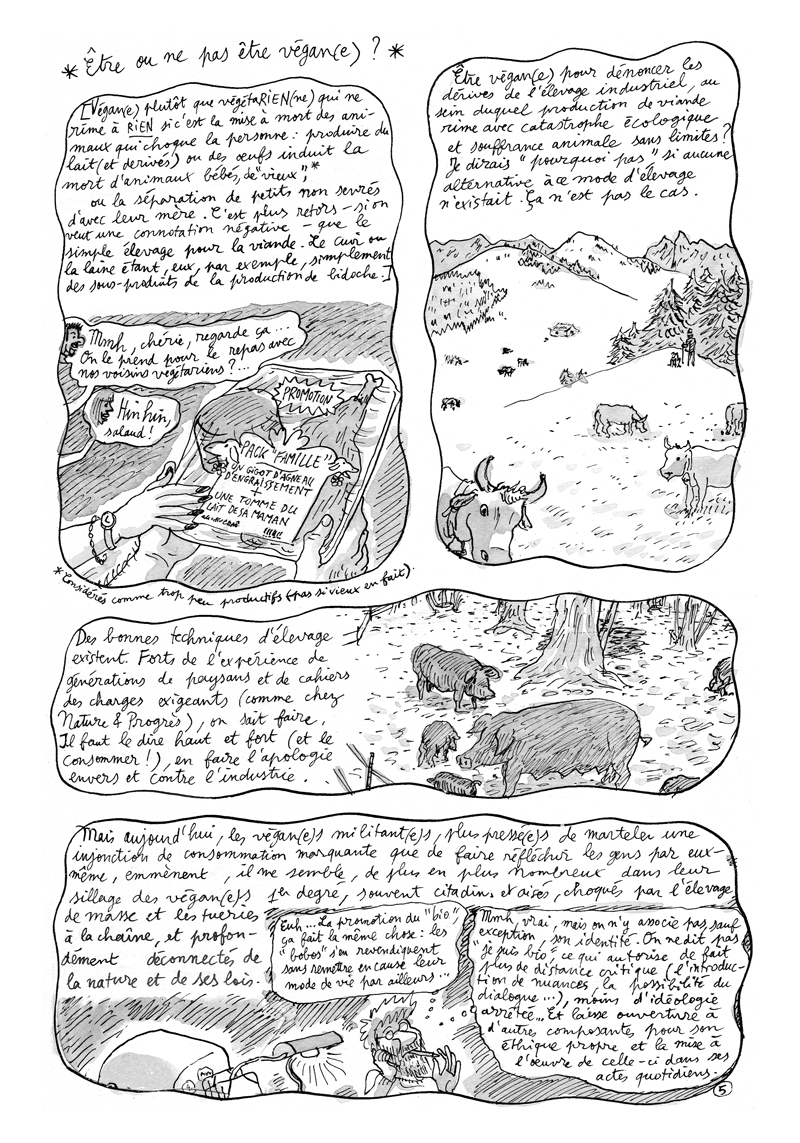 * Être ou ne pas être végan(e) ? *
[Végan(e) plutôt que végétaRIEN(ne) qui ne
rime à RIEN si c'est la mise à mort des ani-
maux qui choque la personne : produire du
lait (et dérivés) ou des œufs induit la
mort d'animaux bébés, de "vieux",*
ou la séparation de petits non sevrés
d'avec leur mère. C'est plus retors - si on
veut une connotation négative - que le
simple élevage pour la viande. Le cuir ou
la laine étant, eux, par exemple, simplement
des sous-produits de la production de bidoche.]
Mmh, chérie, regarde ça...
On le prend pour le repas avec
nos voisins végétariens ?...
Hin hin,
salaud !
PROMOTION
PACK "FAMILLE"
UN GIGOT D'AGNEAU
D'ENGRAISSEMENT
+
UNE TOMME DU
LAIT DE SA MAMAN
!!!!!
* Considérés comme trop peu productifs (pas si vieux en fait).
Être végan(e) pour dénoncer les
dérives de l'élevage industriel, au
sein duquel production de viande
rime avec catastrophe écologique
et souffrance animale sans limites ?
Je dirais "pourquoi pas" si aucune
alternative à ce mode d'élevage
n'existait. Ça n'est pas le cas.
Des bonnes techniques d'élevage
existent. Forts de l'expérience de
générations de paysans et de cahiers
des charges exigeants (comme chez
Nature & Progrès), on sait faire.
Il faut le dire haut et fort (et le
consommer !), en faire l'apologie
envers et contre l'industrie.
Mais aujourd'hui, les végan(e)s militant(e)s, plus pressé(e)s de marteler une
injonction de consommation marquante que de faire réfléchir les gens par eux-
même, emmènent, il me semble, de plus en plus nombreux dans leur
sillage des végan(e)s 1er degré, souvent citadins et aisés, choqués par l'élevage
de masse et les tueries
à la chaîne, et profon-
dément déconnectés de
la nature et de ses lois.
Euh... La promotion du "bio",
ça fait la même chose : les
"bobos" s'en revendiquent
sans remettre en cause leur
mode de vie par ailleurs...
Mmh, vrai, mais on n'y associe pas, sauf
exception, son identité. On ne dit pas
"je suis bio", ce qui autorise de fait
plus de distance critique (l'introduc-
tion de nuances, la possibilité du
dialogue...), moins d'idéologie
arrêtée... Et laisse ouverture à
d'autres composantes pour son
éthique propre et la mise à
l'œuvre de celle-ci dans ses
actes quotidiens.
5